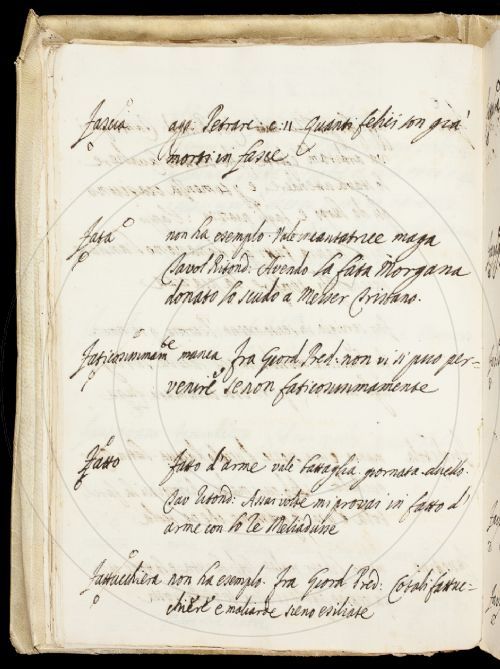 Fascia agg. Petrarc. c. 11 Quanti felici son già
morti in fasce
Fata non ha esempio. Vale incantatrice maga
Tavol Ritond. Avendo la fata Morgana
donato lo scudo a Messer Tristano.
Faticosissimam.te manca. fra Giord Pred. non vi si puo per-
venire se non faticosissimamente
Fatto fatto d'arme vale battaglia giornata duello.
Tav Ritond. Assai volte mi provai in fatto d'
arme con lo re Meliadusse
Fattucchiera non ha esempio. fra Giord Pred. Cotali fattuc-
chiere e maliarde sieno esiliate